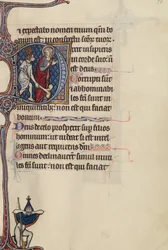 expectabo nomen tuum qm bo
num est in conspectu scorum tuor
ixit insipiens
in corde suo
est deus
Corrupti sunt
et abhominabi
les facti sunt in
iniquitatibus non est qui faciat
bonum
Deus de celo prospexit sup filios
hominum ut videat si est intel
ligens aut requirens
Omnes declinaverunt simul inuti
les facti sunt non est qui faciat